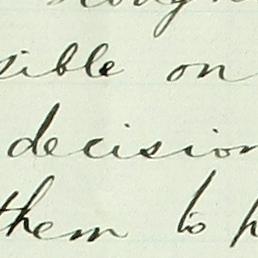 sible on
decision
them to